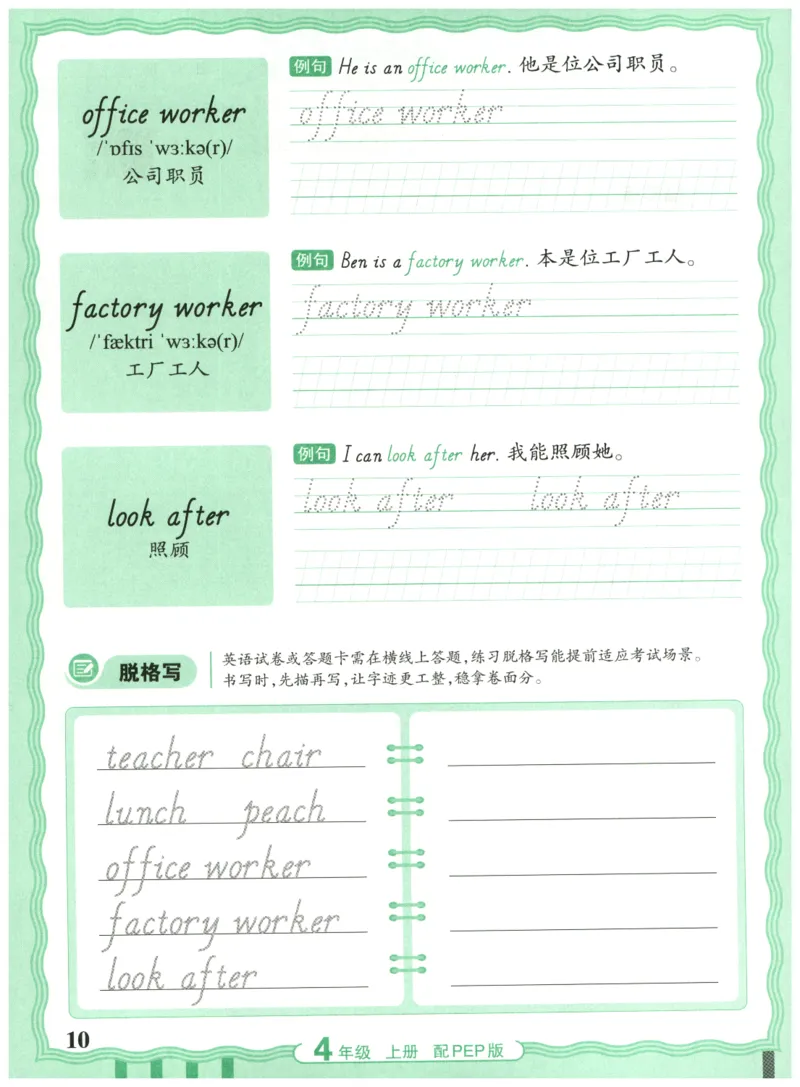 例句 He is an office worker. 他是位公司职员。
office worker
/ˈɒfɪs ˈwɜːkə(r)/
公司职员
office worker
例句 Ben is a factory worker. 本是位工厂工人。
factory worker
/ˈfæktri ˈwɜːkə(r)/
工厂工人
factory worker
例句 I can look after her. 我能照顾她。
look after
照顾
look after look after
脱格写
英语试卷或答题卡需在横线上答题,练习脱格写能提前适应考试场景。
书写时,先描再写,让字迹更工整,稳拿卷面分。
teacher chair
lunch peach
office worker
factory worker
look after
10
4年级 上册 配PEP版